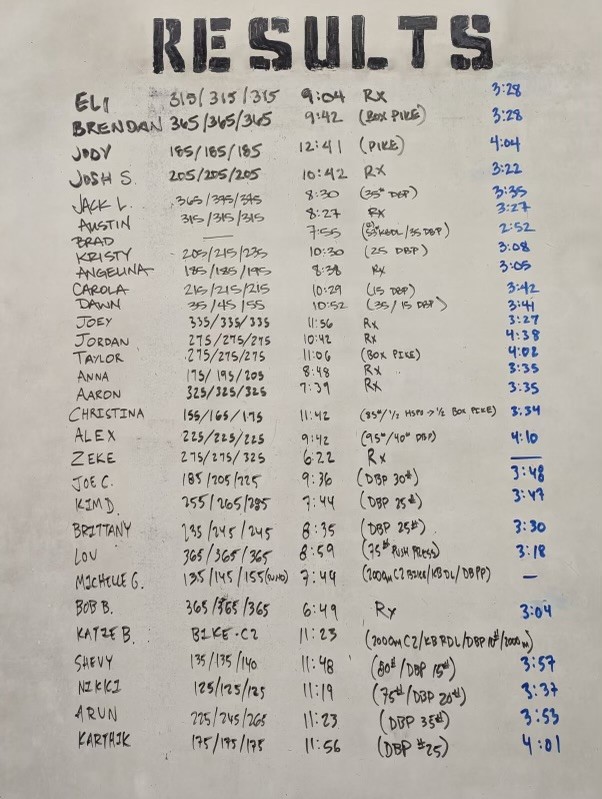 RESULTS
ELI 315/315/315 9:04 RX 3:28
BRENDAN 365/365/365 9:42 (BOX PIKE) 3:28
JODY 185/185/185 12:41 (PIKE) 4:04
JOSH S. 205/205/205 10:42 RX 3:22
JACK L. 365/375/375 8:30 (35# DBP) 3:35
AUSTIN 315/315/315 8:27 RX 3:27
BRAD — 7:55 (53# KBDL/35 DBP) 2:52
KRISTY 205/215/235 10:30 (25 DBP) 3:08
ANGELINA 185/185/195 8:38 Rx 3:05
CAROLA 215/215/215 10:29 (15 DBP) 3:42
DAWN 35/45/55 10:52 (35/15 DBP) 3:41
JOEY 335/335/335 11:56 Rx 3:27
JORDAN 275/275/275 10:42 RX 4:38
TAYLOR 275/275/275 11:06 (BOX PIKE) 4:02
ANNA 175/195/205 8:48 Rx 3:35
AARON 325/325/325 7:39 Rx 3:35
CHRISTINA 155/165/175 11:42 (85#/1/2 HSPU → 1/2 BOX PIKE) 3:34
ALEX 225/225/225 9:42 (95#/40# DBP) 4:10
ZEKE 275/275/325 6:22 Rx —
JOE C. 185/205/225 9:36 (DBP 30#) 3:48
KIM D. 255/265/285 7:44 (DBP 25#) 3:47
BRITTANY 235/245/245 8:35 (DBP 25#) 3:30
LOU 365/365/365 8:59 (75# PUSH PRESS) 3:18
MICHELLE G. 135/145/155 7:44 (2000m C2 BIKE/KB DL/DBPP) —
BOB B. 365/365/365 6:49 Rx 3:04
KATIE B. BIKE-C2 11:23 (2000m C2/KB RDL/DBP 10#/2000m)
SHEVY 135/135/140 11:48 (80#/DBP 15#) 3:57
NIKKI 125/125/125 11:19 (75#/DBP 20#) 3:37
ARUN 225/245/265 11:23 (DBP 35#) 3:53
KARTHIK 175/175/175 11:56 (DBP #25) 4:01